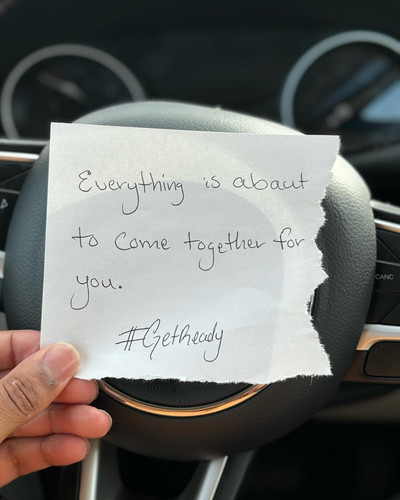 Everything is about
to come together for
you.
#GetReady
CANC